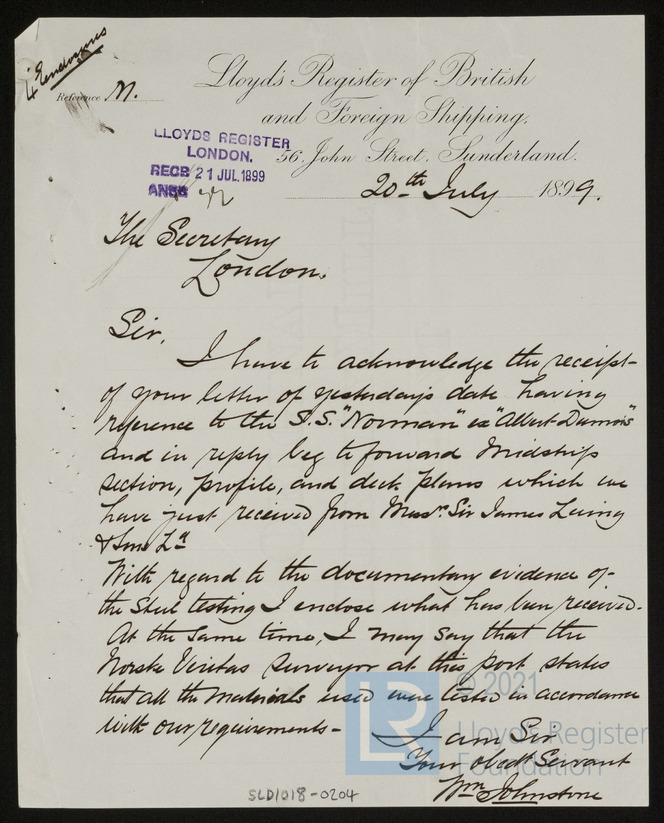 4 Enclosures
Reference M.
Lloyd's Register of British
and Foreign Shipping.
56, John Street, Sunderland.
LLOYDS REGISTER
LONDON.
RECD 21 JUL. 1899
ANSD
20th July 1899.
The Secretary
London.
Sir,
I have to acknowledge the receipt
of your letter of yesterday's date having
reference to the S.S. "Norman" ex "Albert Dumois"
and in reply beg to forward Midship
section, profile, and deck plans which we
have just received from Messrs. Sir James Laing
& Sons Ld
With regard to the documentary evidence of
the Steel testing I enclose what has been received.
At the same time, I may say that the
Norske Veritas Surveyor at this port states
that all the Materials used were tested in accordance
with our requirements -
I am Sir
Your obedt Servant
Wm Johnstone
SLD1018-0204
LR
© 2021
Lloyd's Register
Foundation